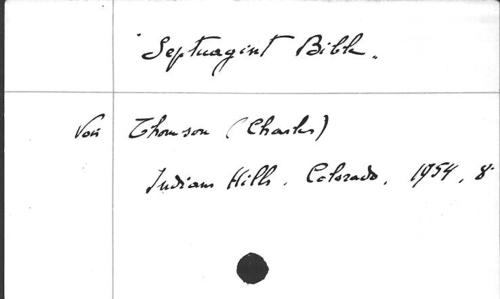 Septuagint Bible.
Voir Thomson (Charles)
Indian Hills. Colorado. 1954, 8°